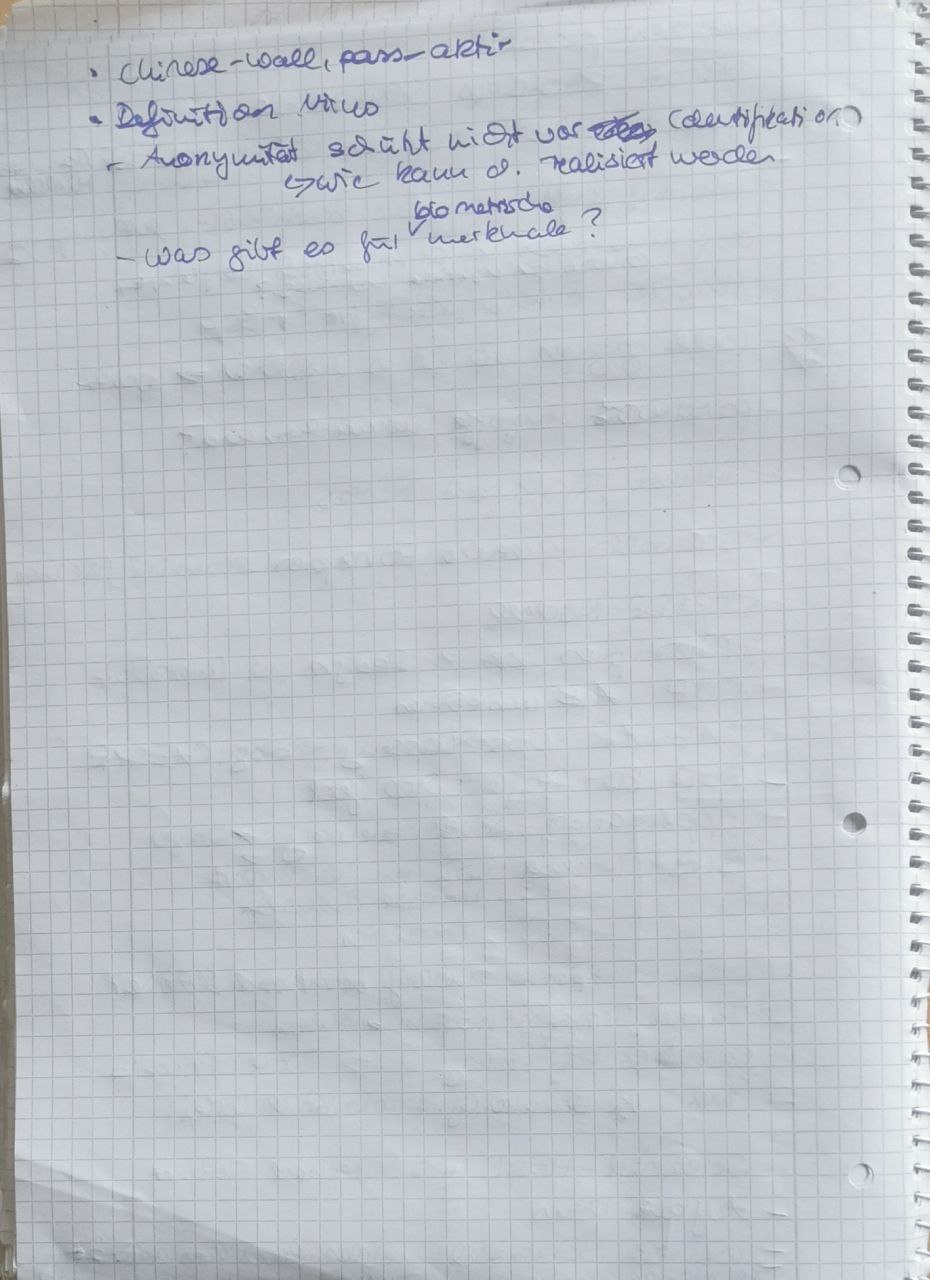 • Chinese-Wall, pass-aktiv
• Definition Virus
- Anonymität schützt nicht vor Identifikation
↳ wie kann d. realisiert werden
- Was gibt es für biometrische merkmale?